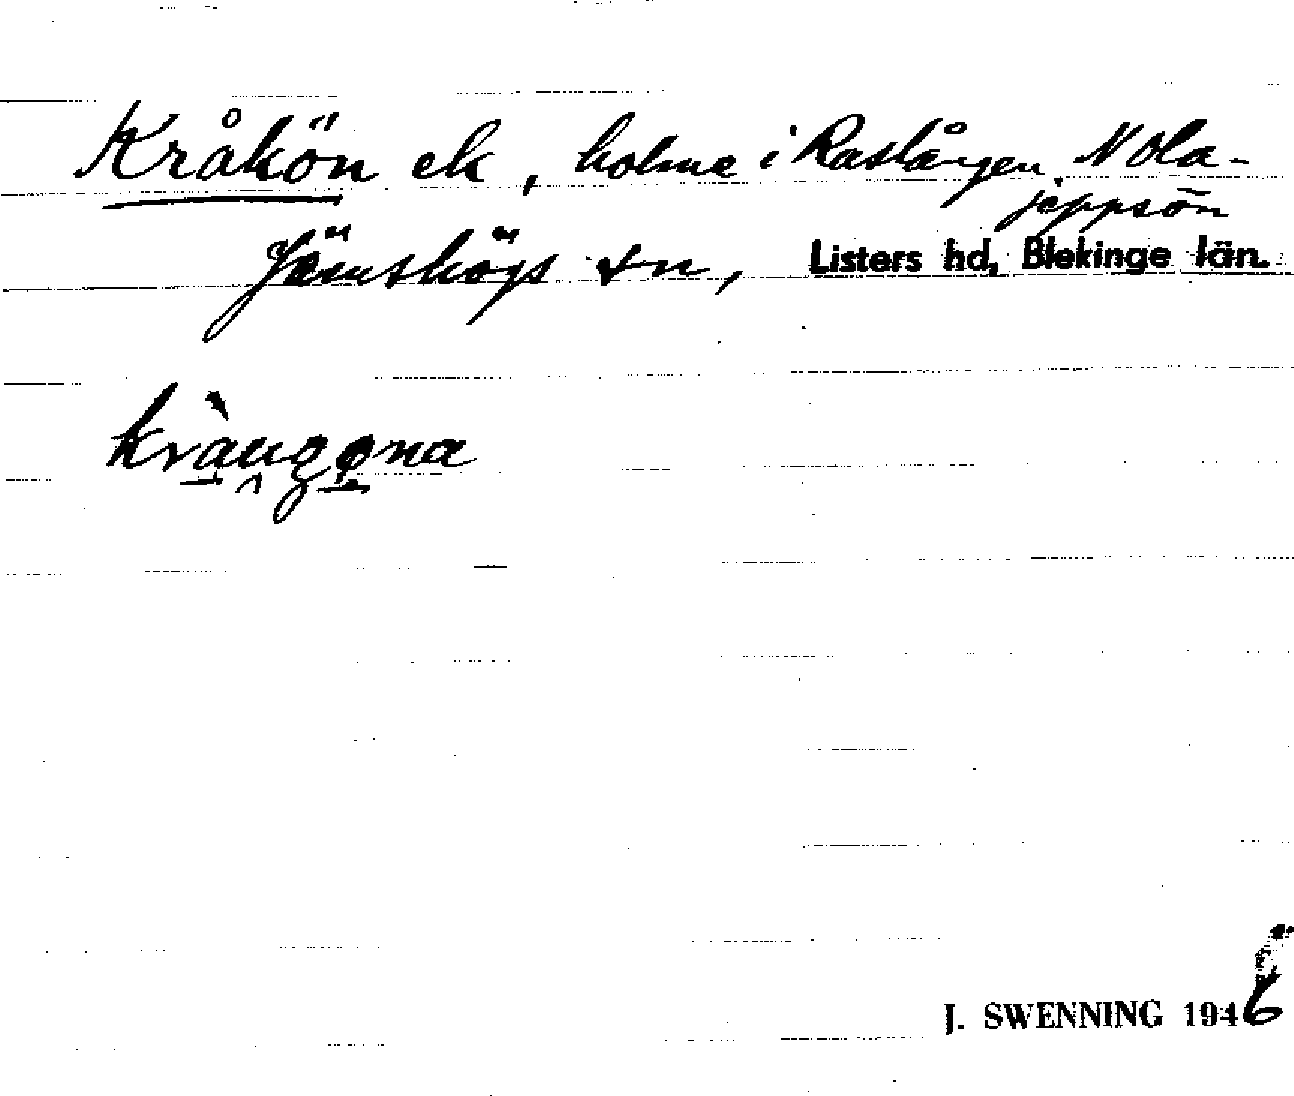 Kråkön ek, holme i Raslången N Ola-
jeppsön
Jämshögs sn, Listers hd, Blekinge län.
kràugøna
J. SWENNING 1946